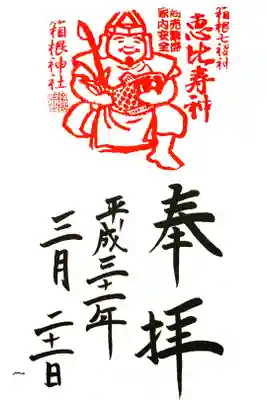 箱根七福神
恵比寿神
商売繁昌
家内安全
箱根神社
奉拝
平成三十一年
三月二十一日